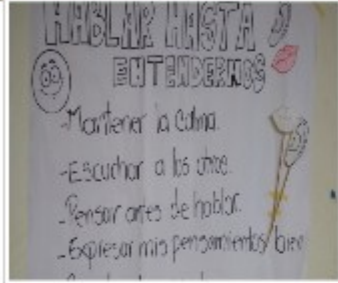 HABLAR HASTA
ENTENDERNOS
- Mantener la calma.
- Escuchar a los otros.
- Pensar antes de hablar.
- Expresar mis pensamientos bien